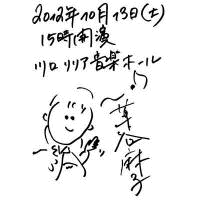 2012年10月13日(土)
15時開演
川口リリア音楽ホール
芊谷麻子